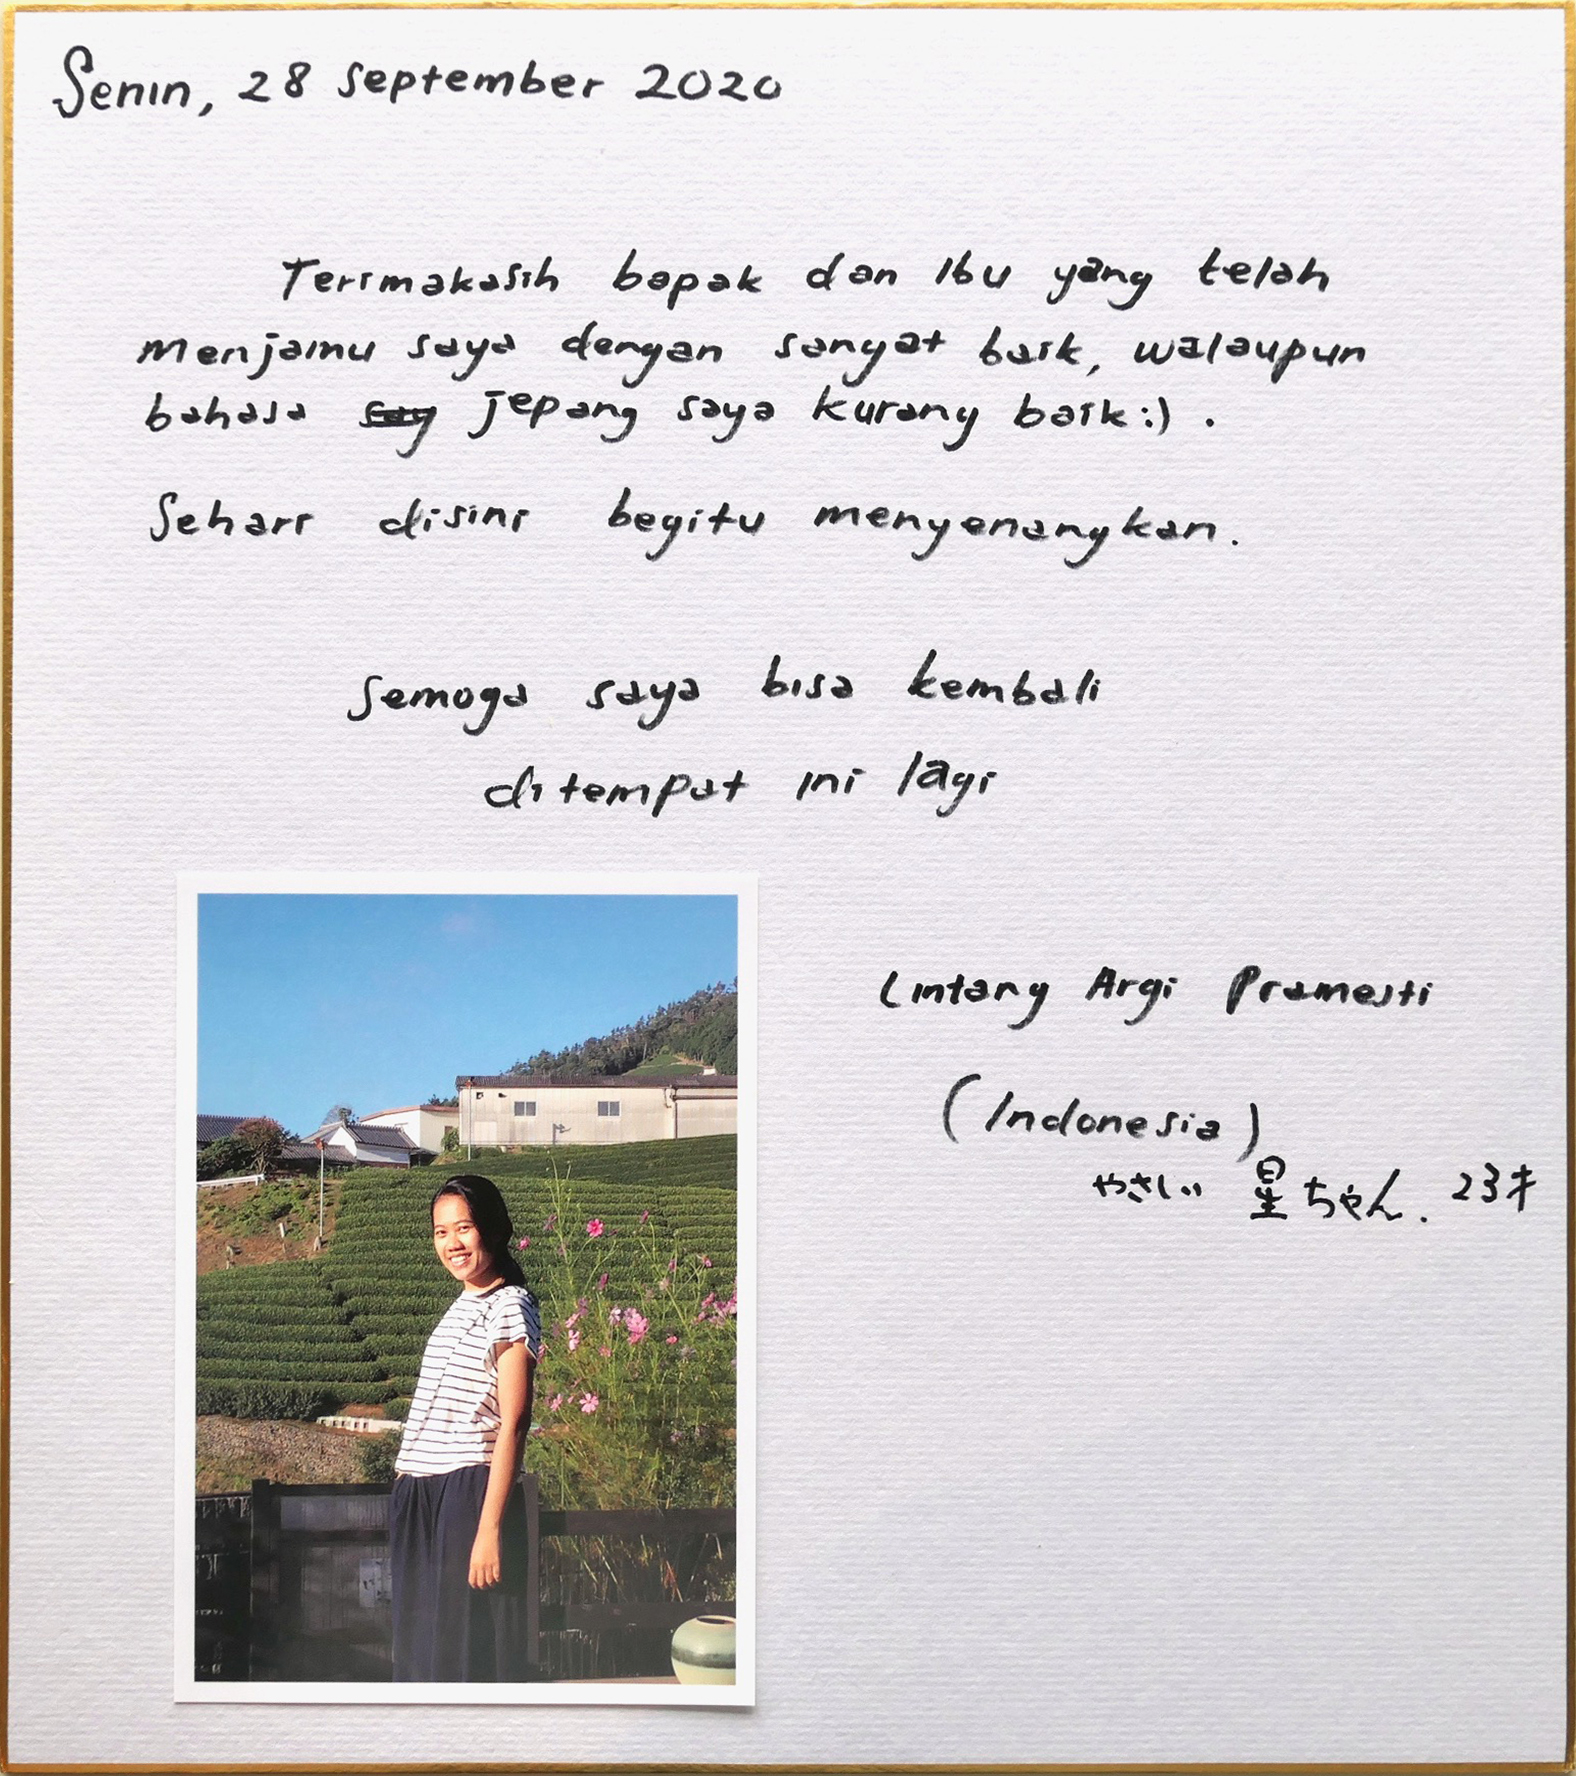 Senin, 28 September 2020
Terimakasih bapak dan Ibu yang telah
menjamu saya dengan sangat baik, walaupun
bahasa jepang saya kurang baik :) .
Sehari disini begitu menyenangkan.
Semoga saya bisa kembali
ditempat ini lagi
Lintang Argi Pramesti
(Indonesia)
やさしい 星ちゃん. 23才